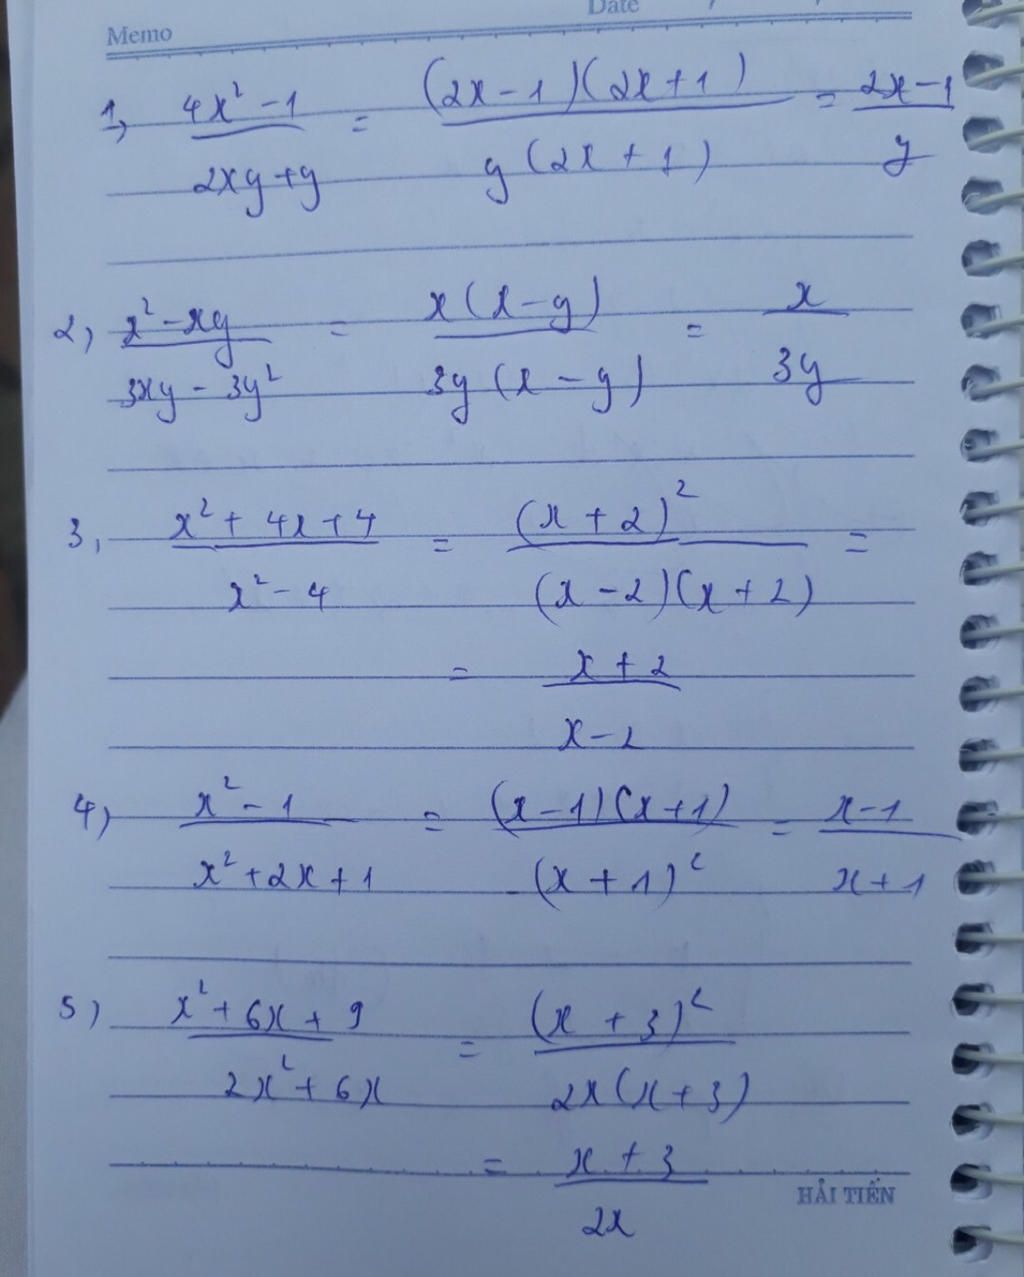 Memo Date / /
1, (4x² - 1)/(2xy + y) = ((2x - 1)(2x + 1))/(y(2x + 1)) = (2x - 1)/y
2, (x² - xy)/(3xy - 3y²) = (x(x - y))/(3y(x - y)) = x/(3y)
3, (x² + 4x + 4)/(x² - 4) = (x + 2)²/((x - 2)(x + 2)) =
= (x + 2)/(x - 2)
4) (x² - 1)/(x² + 2x + 1) = ((x - 1)(x + 1))/(x + 1)² = (x - 1)/(x + 1)
5) (x² + 6x + 9)/(2x² + 6x) = (x + 3)²/(2x(x + 3))
= (x + 3)/(2x)
HẢI TIẾN